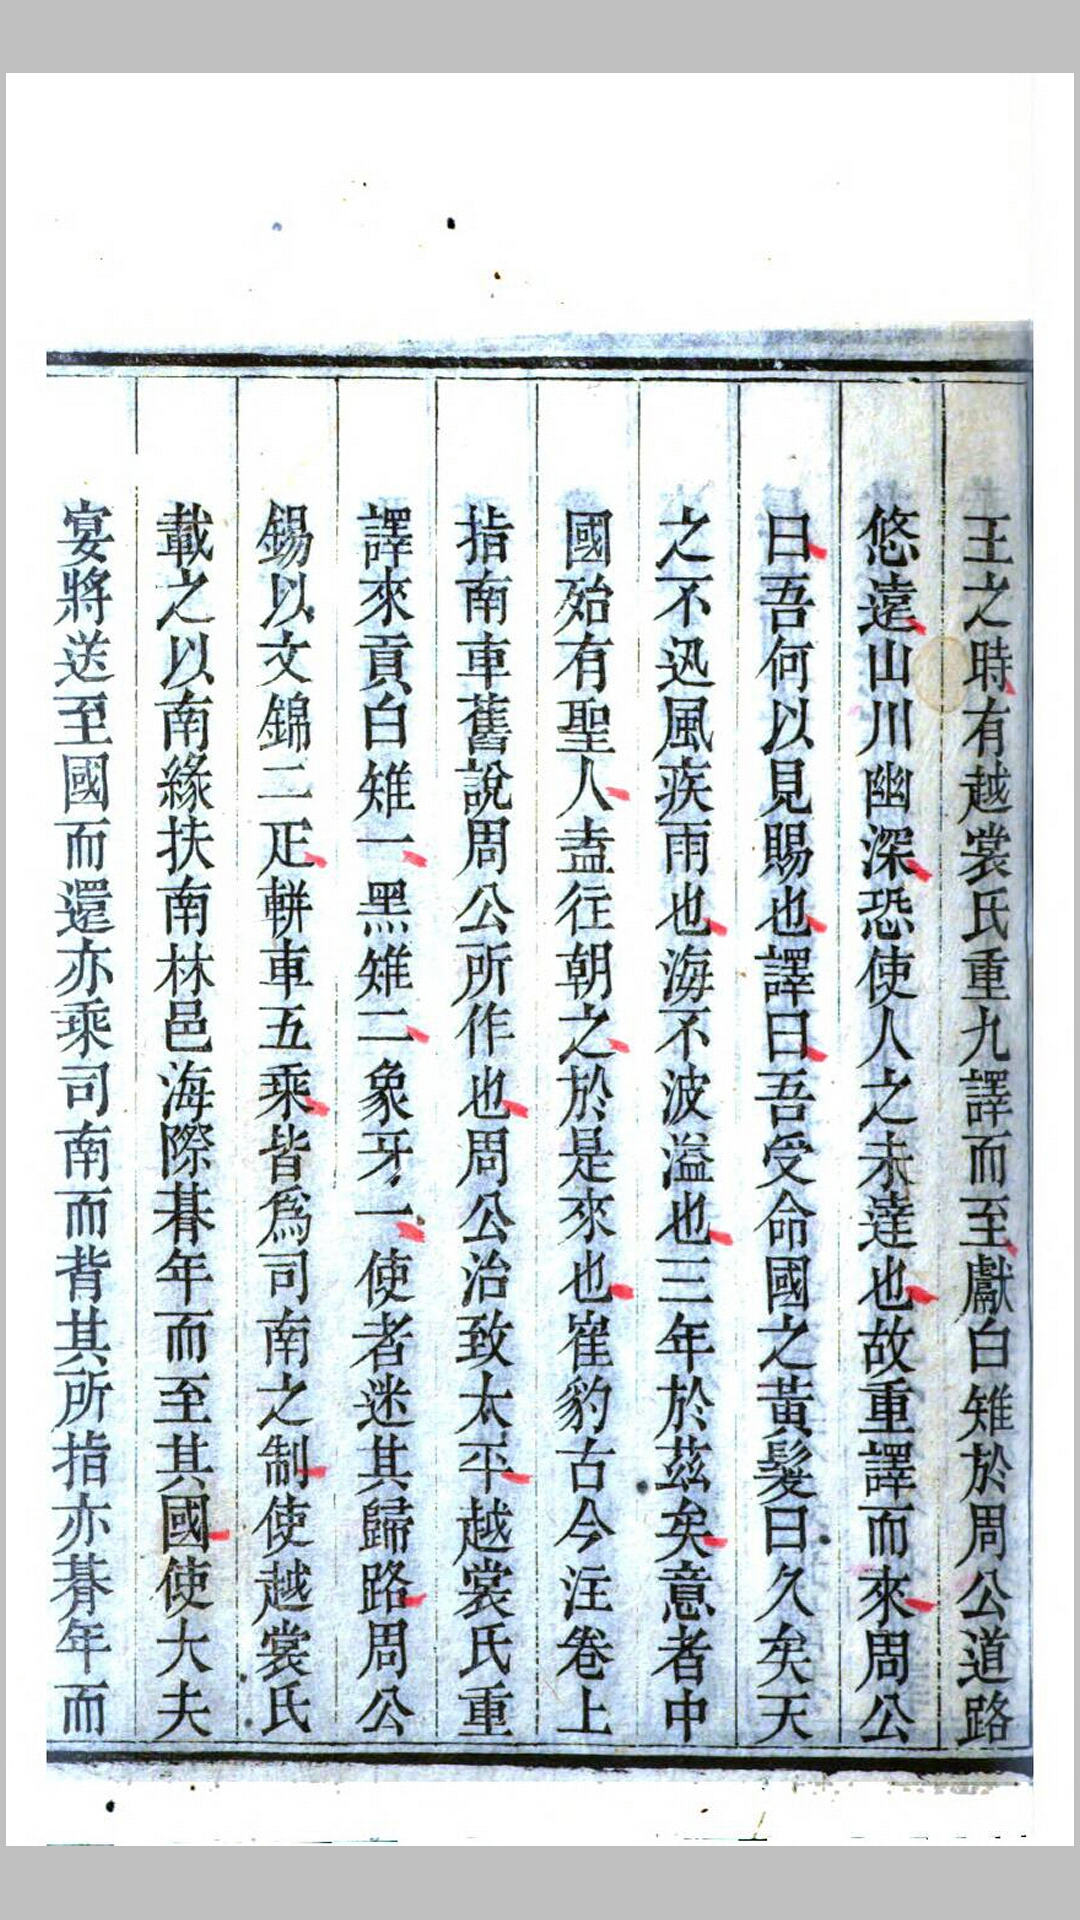 王之時有越裳氏重九譯而至獻白雉於周公道路
悠遠山川幽深恐使人之未達也故重譯而來周公
曰吾何以見賜也譯曰吾受命國之黃髮曰久矣天
之不迅風疾雨也海不波溢也三年於茲矣意者中
國殆有聖人盍往朝之於是來也崔豹古今注卷上
指南車舊說周公所作也周公治致太平越裳氏重
譯來貢白雉一黑雉二象牙一使者迷其歸路周公
錫以文錦二疋軿車五乘皆爲司南之制使越裳氏
載之以南緣扶南林邑海際朞年而至其國使大夫
宴將送至國而還亦乘司南而背其所指亦朞年而